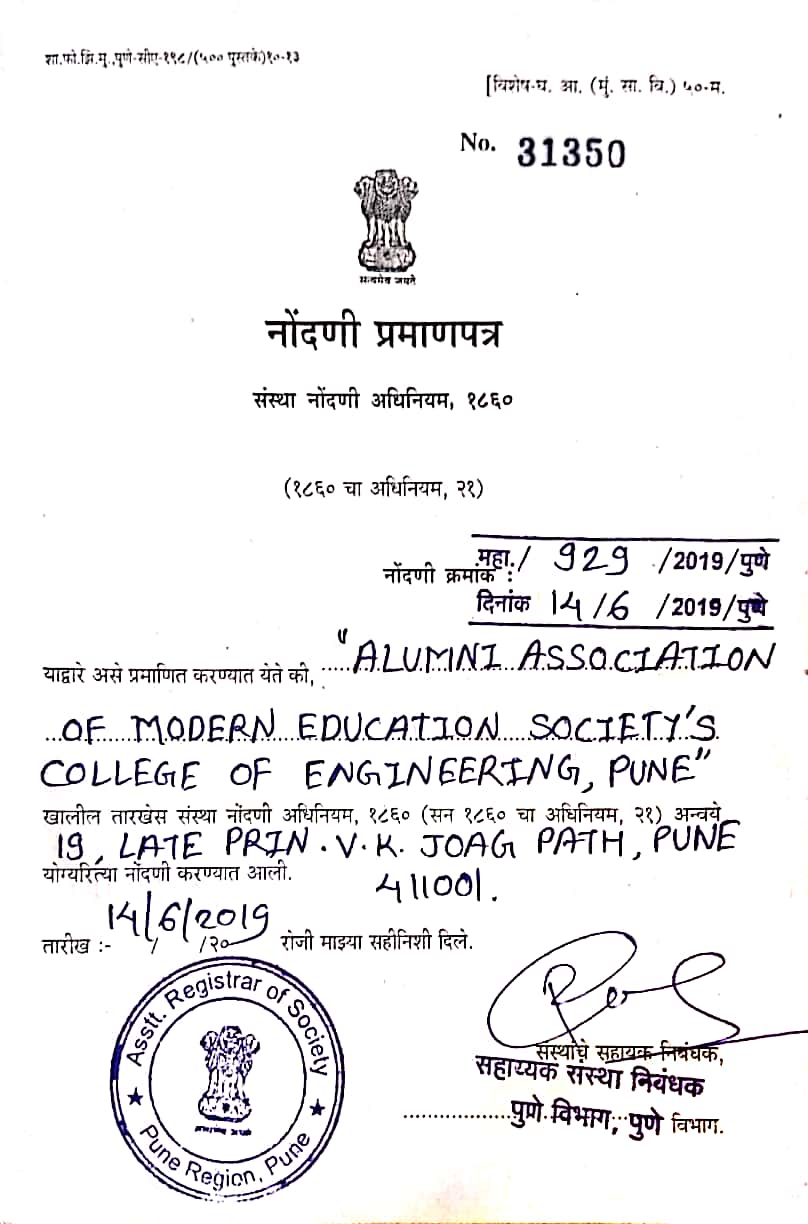 शा.फो.झिं.मु.,पुणे-सीए-१९८/(५०० पुस्तके)१०-१३
[विशेष-घ. आ. (मुं. सा. वि.) ५०-म.
No. 31350
सत्यमेव जयते
नोंदणी प्रमाणपत्र
संस्था नोंदणी अधिनियम, १८६०
(१८६० चा अधिनियम, २१)
नोंदणी क्रमांक : महा./ 929 /2019/पुणे
दिनांक 14/6 /2019/पुणे
याद्वारे असे प्रमाणित करण्यात येते की, ....."ALUMNI ASSOCIATION
OF MODERN EDUCATION SOCIETY'S
COLLEGE OF ENGINEERING, PUNE"
खालील तारखेस संस्था नोंदणी अधिनियम, १८६० (सन १८६० चा अधिनियम, २१) अन्वये
19, LATE PRIN. V. K. JOAG PATH, PUNE
योग्यरित्या नोंदणी करण्यात आली. 411001.
14/6/2019
तारीख :- / /२० रोजी माझ्या सहीनिशी दिले.
Asstt. Registrar of Society
Pune Region, Pune
संस्थांचे सहायक निबंधक,
सहाय्यक संस्था निबंधक
पुणे विभाग, पुणे विभाग.